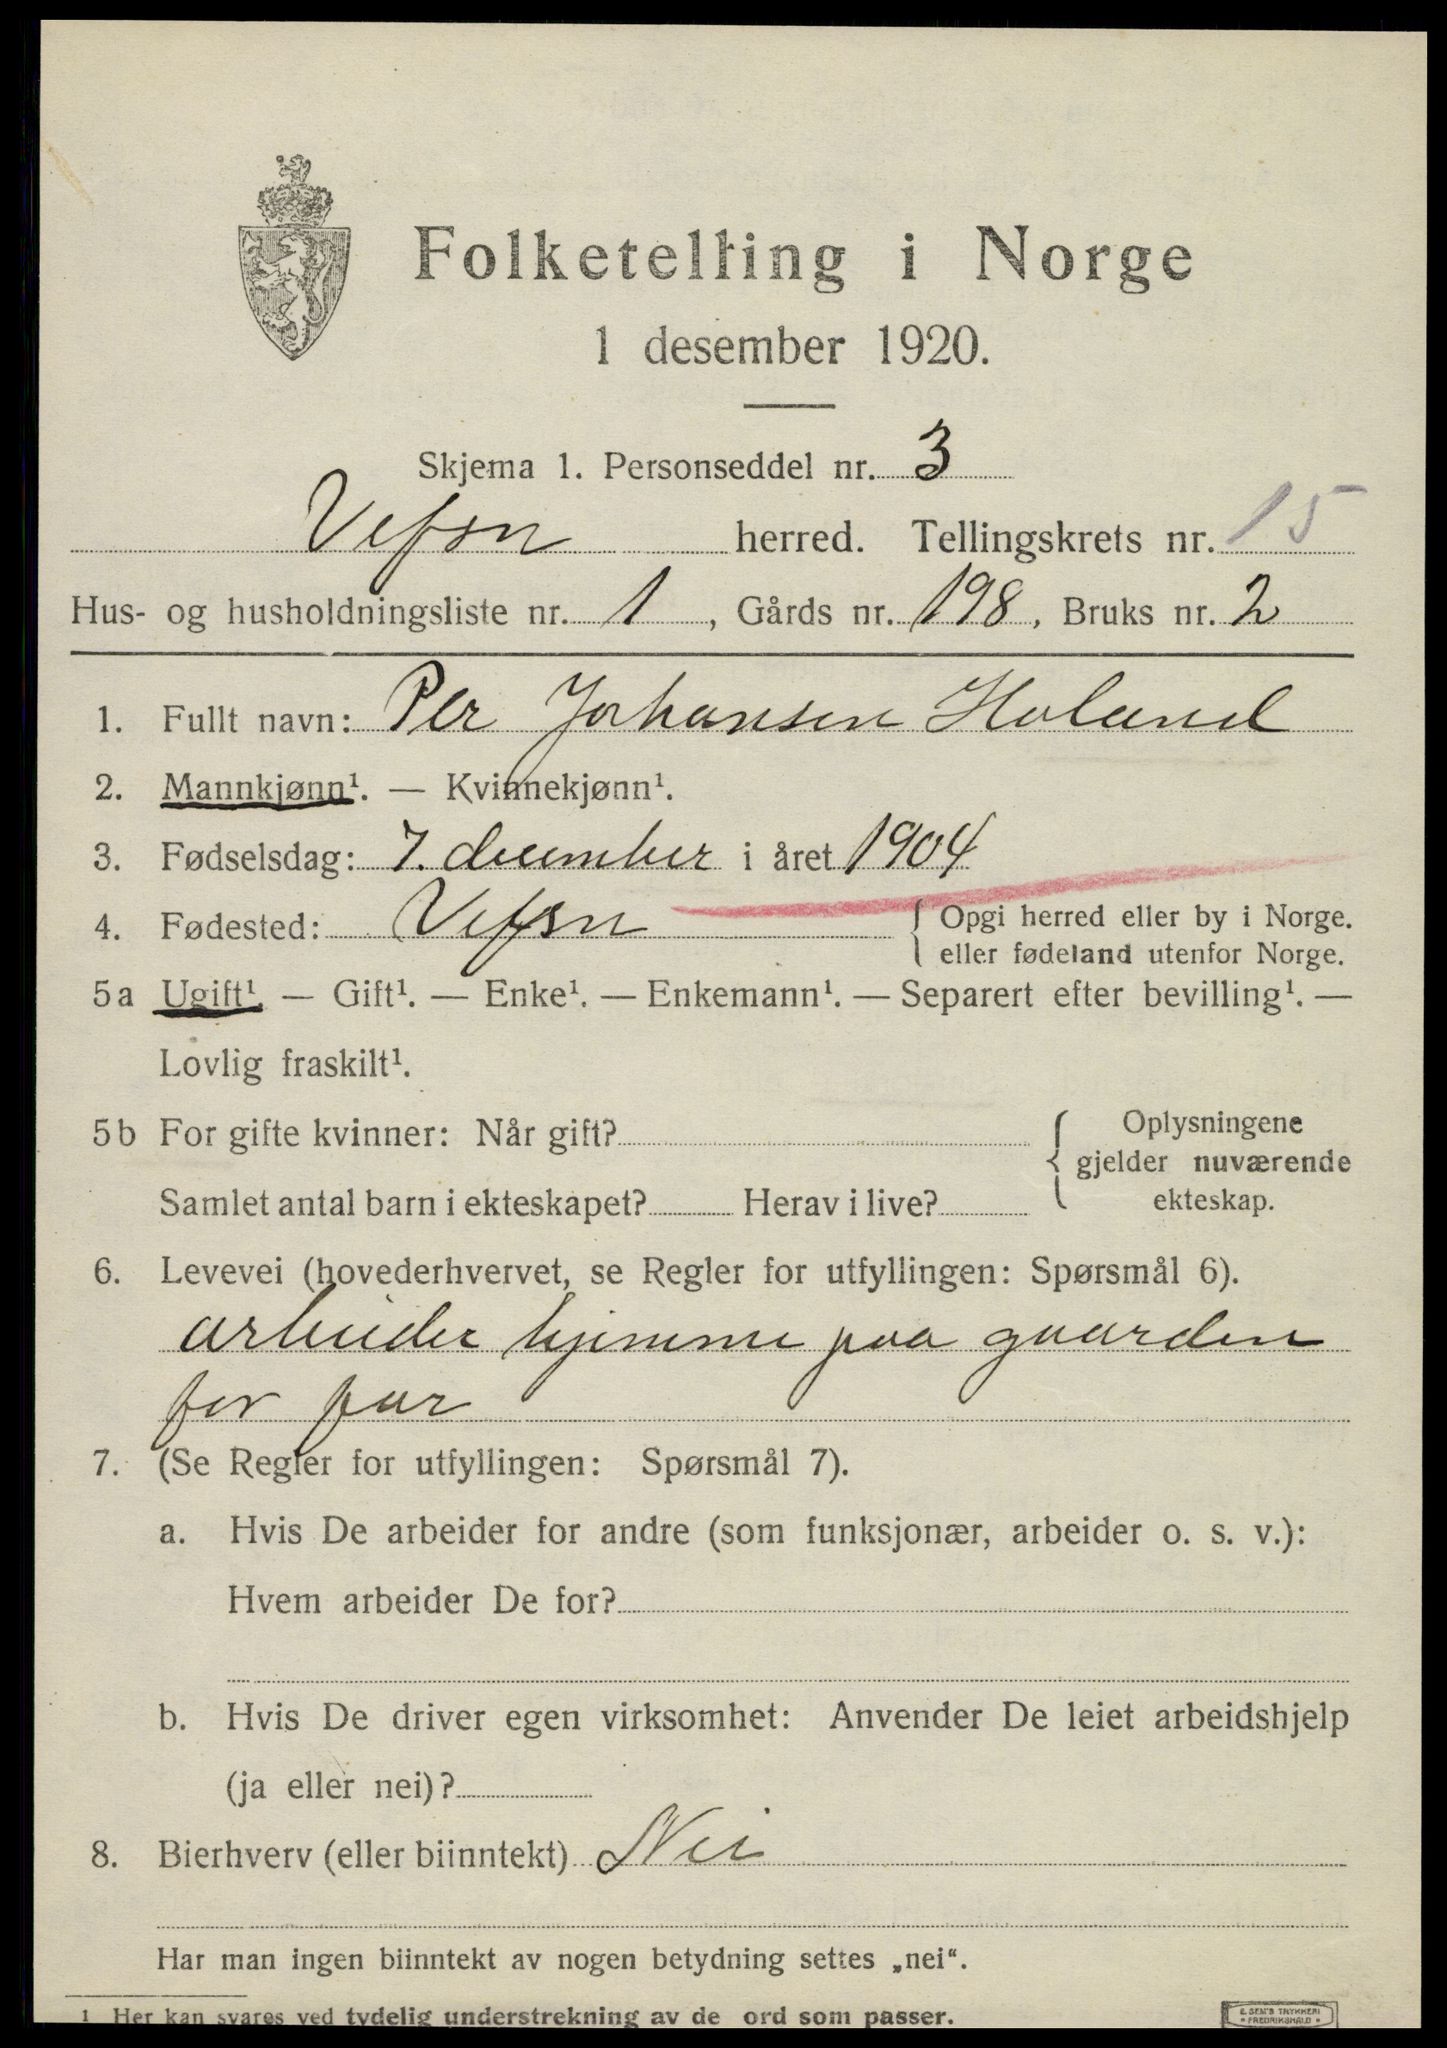 Folketelling i Norge
1 desember 1920.
Skjema 1. Personseddel nr. 3
Vefsn herred. Tellingskrets nr. 15
Hus- og husholdningsliste nr. 1, Gårds nr. 198, Bruks nr. 2
1. Fullt navn: Per Johansen Holand
2. Mannkjønn¹. — Kvinnekjønn¹.
3. Fødselsdag: 7. december i året 1904
4. Fødested: Vefsn { Opgi herred eller by i Norge.
eller fødeland utenfor Norge.
5a Ugift¹. — Gift¹. — Enke¹. — Enkemann¹. — Separert efter bevilling¹. —
Lovlig fraskilt¹.
5b For gifte kvinner: Når gift? { Oplysningene
gjelder nuværende
Samlet antal barn i ekteskapet? Herav i live? ekteskap.
6. Levevei (hovederhvervet, se Regler for utfyllingen: Spørsmål 6).
arbeider hjemme paa gaarden
for far
7. (Se Regler for utfyllingen: Spørsmål 7).
a. Hvis De arbeider for andre (som funksjonær, arbeider o. s. v.):
Hvem arbeider De for?
b. Hvis De driver egen virksomhet: Anvender De leiet arbeidshjelp
(ja eller nei)?
8. Bierhverv (eller biinntekt) Nei
Har man ingen biinntekt av nogen betydning settes „nei“.
1 Her kan svares ved tydelig understrekning av de ord som passer.
E. SEM'S TRYKKERI
FREDRIKSHALD